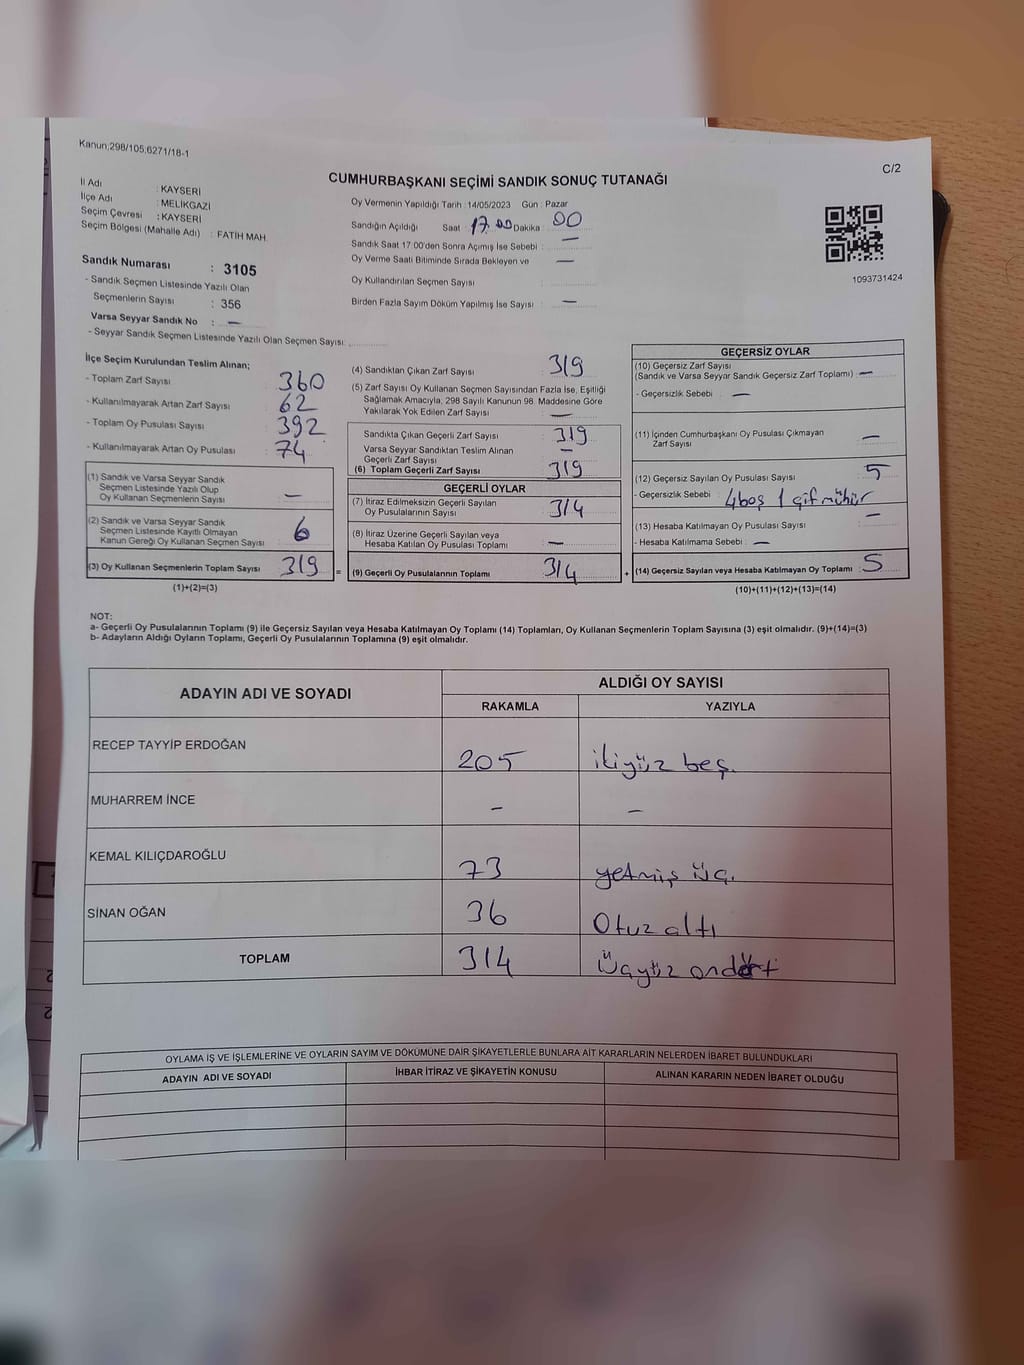 Kanun;298/105,6271/18-1
C/2
CUMHURBAŞKANI SEÇİMİ SANDIK SONUÇ TUTANAĞI
İl Adı : KAYSERİ
İlçe Adı : MELİKGAZİ
Seçim Çevresi : KAYSERİ
Seçim Bölgesi (Mahalle Adı) : FATİH MAH.
Sandık Numarası : 3105
- Sandık Seçmen Listesinde Yazılı Olan
Seçmenlerin Sayısı : 356
Varsa Seyyar Sandık No : —
- Seyyar Sandık Seçmen Listesinde Yazılı Olan Seçmen Sayısı:
Oy Vermenin Yapıldığı Tarih : 14/05/2023 Gün : Pazar
Sandığın Açıldığı Saat : 17.00 Dakika : 00
Sandık Saat 17:00'den Sonra Açımış İse Sebebi : —
Oy Verme Saati Bitiminde Sırada Bekleyen ve —
Oy Kullandırılan Seçmen Sayısı
Birden Fazla Sayım Döküm Yapılmış İse Sayısı : —
1093731424
İlçe Seçim Kurulundan Teslim Alınan;
- Toplam Zarf Sayısı : 360
- Kullanılmayarak Artan Zarf Sayısı : 62
- Toplam Oy Pusulası Sayısı : 392
- Kullanılmayarak Artan Oy Pusulası : 74
(1) Sandık ve Varsa Seyyar Sandık
Seçmen Listesinde Yazılı Olup
Oy Kullanan Seçmenlerin Sayısı : —
(2) Sandık ve Varsa Seyyar Sandık
Seçmen Listesinde Kayıtlı Olmayan
Kanun Gereği Oy Kullanan Seçmen Sayısı : 6
(3) Oy Kullanan Seçmenlerin Toplam Sayısı : 319
(1)+(2)=(3)
=
(4) Sandıktan Çıkan Zarf Sayısı : 319
(5) Zarf Sayısı Oy Kullanan Seçmen Sayısından Fazla İse, Eşitliği
Sağlamak Amacıyla, 298 Sayılı Kanunun 98. Maddesine Göre
Yakılarak Yok Edilen Zarf Sayısı : —
Sandıkta Çıkan Geçerli Zarf Sayısı : 319
Varsa Seyyar Sandıktan Teslim Alınan
Geçerli Zarf Sayısı : —
(6) Toplam Geçerli Zarf Sayısı : 319
GEÇERLİ OYLAR
(7) İtiraz Edilmeksizin Geçerli Sayılan
Oy Pusulalarının Sayısı : 314
(8) İtiraz Üzerine Geçerli Sayılan veya
Hesaba Katılan Oy Pusulası Toplamı : —
(9) Geçerli Oy Pusulalarının Toplamı : 314
+
GEÇERSİZ OYLAR
(10) Geçersiz Zarf Sayısı
(Sandık ve Varsa Seyyar Sandık Geçersiz Zarf Toplamı) : —
- Geçersizlik Sebebi : —
(11) İçinden Cumhurbaşkanı Oy Pusulası Çıkmayan
Zarf Sayısı : —
(12) Geçersiz Sayılan Oy Pusulası Sayısı : 5
- Geçersizlik Sebebi : 4boş 1 çif mühür
(13) Hesaba Katılmayan Oy Pusulası Sayısı : —
- Hesaba Katılmama Sebebi : —
(14) Geçersiz Sayılan veya Hesaba Katılmayan Oy Toplamı : 5
(10)+(11)+(12)+(13)=(14)
NOT:
a- Geçerli Oy Pusulalarının Toplamı (9) ile Geçersiz Sayılan veya Hesaba Katılmayan Oy Toplamı (14) Toplamları, Oy Kullanan Seçmenlerin Toplam Sayısına (3) eşit olmalıdır. (9)+(14)=(3)
b- Adayların Aldığı Oyların Toplamı, Geçerli Oy Pusulalarının Toplamına (9) eşit olmalıdır.
ADAYIN ADI VE SOYADI
ALDIĞI OY SAYISI
RAKAMLA YAZIYLA
RECEP TAYYİP ERDOĞAN 205 ikiyüz beş.
MUHARREM İNCE – –
KEMAL KILIÇDAROĞLU 73 yetmiş üç.
SİNAN OĞAN 36 Otuz altı
TOPLAM 314 üçyüz ondört
OYLAMA İŞ VE İŞLEMLERİNE VE OYLARIN SAYIM VE DÖKÜMÜNE DAİR ŞİKAYETLERLE BUNLARA AİT KARARLARIN NELERDEN İBARET BULUNDUKLARI
ADAYIN ADI VE SOYADI İHBAR İTİRAZ VE ŞİKAYETİN KONUSU ALINAN KARARIN NEDEN İBARET OLDUĞU